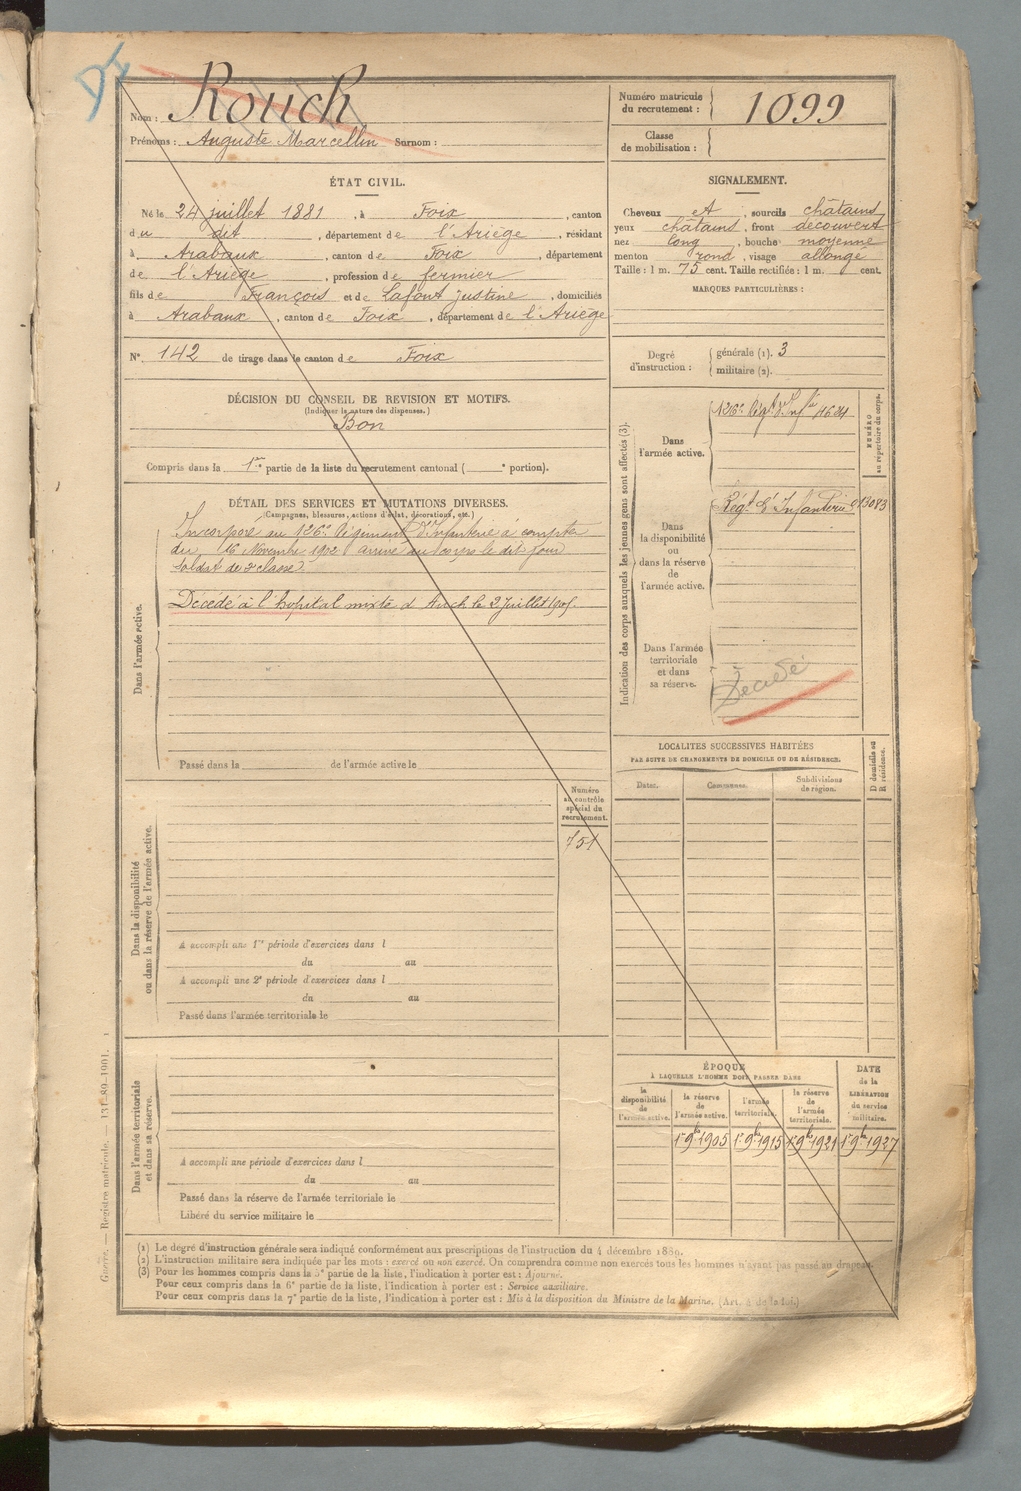 Nom : Rouch
Prénoms : Auguste Marcellin Surnom :
Numéro matricule du recrutement : 1099
Classe de mobilisation :
ÉTAT CIVIL.
Né le 24 juillet 1881, à Foix, canton
du dit, département de l'Ariège, résidant
à Arabaux, canton de Foix, département
de l'Ariège, profession de fermier
fils de François et de Lafont Justine, domiciliés
à Arabaux, canton de Foix, département de l'Ariège
N° 142 de tirage dans le canton de Foix
SIGNALEMENT.
Cheveux et, sourcils châtains
yeux châtains, front découvert
nez long, bouche moyenne
menton rond, visage allongé
Taille : 1 m. 75 cent. Taille rectifiée : 1 m. cent.
MARQUES PARTICULIÈRES :
Degré d'instruction : générale (1). 3
militaire (2).
DÉCISION DU CONSEIL DE REVISION ET MOTIFS.
(Indiquer la nature des dispenses.)
Bon
Compris dans la 1re partie de la liste du recrutement cantonal ( e portion).
DÉTAIL DES SERVICES ET MUTATIONS DIVERSES.
(Campagnes, blessures, actions d'éclat, décorations, etc.)
Dans l'armée active.
Incorporé au 126e Régiment d'Infanterie à compter
du 16 Novembre 1902 arrivé au corps le dit jour
soldat de 2e classe.
Décédé à l'hôpital mixte d'Auch le 2 Juillet 1905.
Passé dans la de l'armée active le
Indication des corps auxquels les jeunes gens sont affectés (3).
Dans l'armée active.
126e Régt d'Infie
NUMÉRO au répertoire du corps.
Dans la disponibilité ou dans la réserve de l'armée active.
Régt d'Infanterie 13083
Dans l'armée territoriale et dans sa réserve.
Décédé
LOCALITÉS SUCCESSIVES HABITÉES
PAR SUITE DE CHANGEMENTS DE DOMICILE OU DE RÉSIDENCE.
Dates. Communes. Subdivisions de région.
D domicile ou R résidence.
Dans la disponibilité ou dans la réserve de l'armée active.
Numéro au contrôle spécial du recrutement.
751
A accompli une 1re période d'exercices dans l
du au
A accompli une 2e période d'exercices dans l
du au
Passé dans l'armée territoriale le
Dans l'armée territoriale et dans sa réserve.
A accompli une période d'exercices dans l
du au
Passé dans la réserve de l'armée territoriale le
Libéré du service militaire le
ÉPOQUE
À LAQUELLE L'HOMME DOIT PASSER DANS
la disponibilité de l'armée active.
la réserve de l'armée active.
l'armée territoriale.
la réserve de l'armée territoriale.
DATE de la LIBÉRATION du service militaire.
1er 9bre 1905 1er 9bre 1915 1er 9bre 1921 1er 9bre 1927
(1) Le degré d'instruction générale sera indiqué conformément aux prescriptions de l'instruction du 4 décembre 1889.
(2) L'instruction militaire sera indiquée par les mots : exercé ou non exercé. On comprendra comme non exercés tous les hommes n'ayant pas passé au drapeau.
(3) Pour les hommes compris dans la 5e partie de la liste, l'indication à porter est : Ajourné.
Pour ceux compris dans la 6e partie de la liste, l'indication à porter est : Service auxiliaire.
Pour ceux compris dans la 7e partie de la liste, l'indication à porter est : Mis à la disposition du Ministre de la Marine. (Art. 4 de la loi.)
Guerre. — Registre matricule. — 131-89-1901.